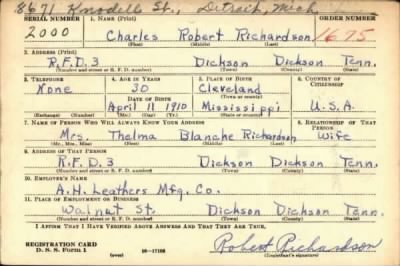 8671 Knodell St., Detroit, Mich
SERIAL NUMBER 1. NAME (Print) ORDER NUMBER
2000 Charles Robert Richardson 1675
(First) (Middle) (Last)
2. ADDRESS (Print)
R.F.D. 3 Dickson Dickson Tenn.
(Number and street or R. F. D. number) (Town) (County) (State)
3. TELEPHONE 4. AGE IN YEARS 5. PLACE OF BIRTH 6. COUNTRY OF CITIZENSHIP
None 30 Cleveland
DATE OF BIRTH (Town or county)
April 11 1910 Mississippi U.S.A.
(Exchange) (Number) (Mo.) (Day) (Yr.) (State or country)
7. NAME OF PERSON WHO WILL ALWAYS KNOW YOUR ADDRESS 8. RELATIONSHIP OF THAT PERSON
Mrs. Thelma Blanche Richardson Wife
(Mr., Mrs., Miss) (First) (Middle) (Last)
9. ADDRESS OF THAT PERSON
R.F.D. 3 Dickson Dickson Tenn.
(Number and street or R. F. D. number) (Town) (County) (State)
10. EMPLOYER'S NAME
A.H. Leathers Mfg. Co.
11. PLACE OF EMPLOYMENT OR BUSINESS
Walnut St. Dickson Dickson Tenn.
(Number and street or R. F. D. number) (Town) (County) (State)
I AFFIRM THAT I HAVE VERIFIED ABOVE ANSWERS AND THAT THEY ARE TRUE.
REGISTRATION CARD
D. S. S. Form 1 (over) Robert Richardson
(Registrant's signature)